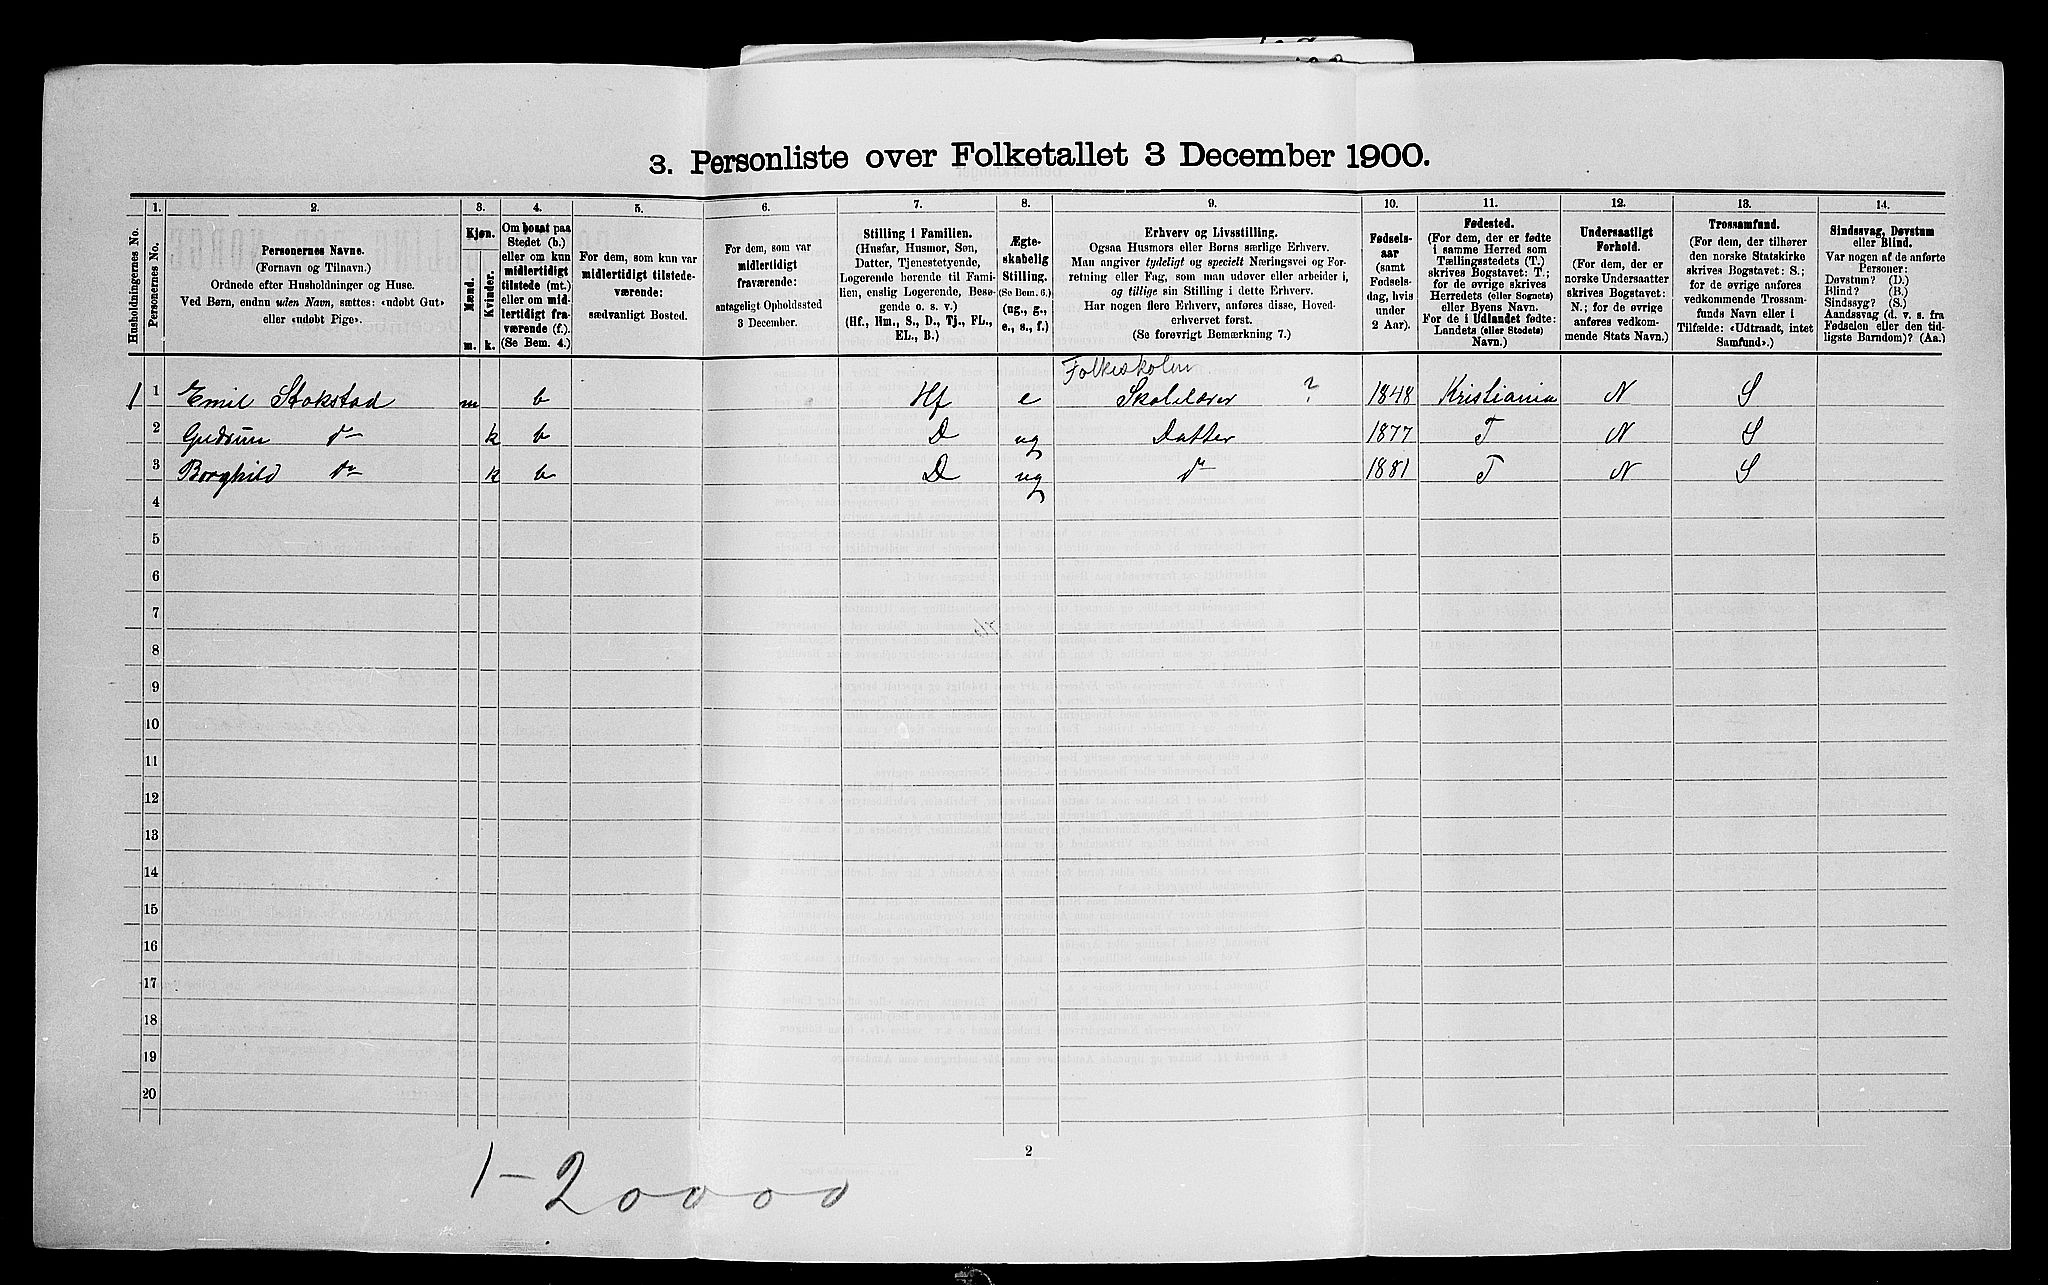 3. Personliste over Folketallet 3 December 1900.
1. 2. 3. 4. 5. 6. 7. 8. 9. 10. 11. 12. 13. 14.
Husholdningernes No.
Personernes No.
Personernes Navne.
(Fornavn og Tilnavn.)
Ordnede efter Husholdninger og Huse.
Ved Børn, endnu uden Navn, sættes: «udøbt Gut»
eller «udøbt Pige».
Kjøn.
Mænd.
Kvinder.
m. k.
Om bosat paa
Stedet (b.)
eller om kun
midlertidigt
tilstede (mt.)
eller om mid-
lertidigt fra-
værende (f.).
(Se Bem. 4.)
For dem, som kun var
midlertidigt tilstede-
værende:
sædvanligt Bosted.
For dem, som var
midlertidigt
fraværende:
antageligt Opholdssted
3 December.
Stilling i Familien.
(Husfar, Husmor, Søn,
Datter, Tjenestetyende,
Logerende hørende til Fami-
lien, enslig Logerende, Besø-
gende o. s. v.)
(Hf., Hm., S., D., Tj., FL.,
EL., B.)
Ægte-
skabelig
Stilling.
(Se Bem. 6.)
(ug., g.,
e., s., f.)
Erhverv og Livsstilling.
Ogsaa Husmors eller Børns særlige Erhverv.
Man angiver tydeligt og specielt Næringsvei og For-
retning eller Fag, som man udøver eller arbeider i,
og tillige sin Stilling i dette Erhverv.
Har nogen flere Erhverv, anføres disse, Hoved-
erhvervet først.
(Se forøvrigt Bemærkning 7.)
Fødsels-
aar
(samt
Fødsels-
dag, hvis
under
2 Aar).
Fødested.
(For dem, der er fødte
i samme Herred som
Tællingsstedets (T.)
skrives Bogstavet: T.;
for de øvrige skrives
Herredets (eller Sognets)
eller Byens Navn.
For de i Udlandet fødte:
Landets (eller Stedets)
Navn.)
Undersaatligt
Forhold.
(For dem, der er
norske Undersaatter
skrives Bogstavet:
N.; for de øvrige
anføres vedkom-
mende Stats Navn.)
Trossamfund.
(For dem, der tilhører
den norske Statskirke
skrives Bogstavet: S.;
for de øvrige anføres
vedkommende Trossam-
funds Navn eller i
Tilfælde: «Udtraadt, intet
Samfund».)
Sindssvag, Døvstum
eller Blind.
Var nogen af de anførte
Personer:
Døvstum? (D.)
Blind? (B.)
Sindssyg? (S.)
Aandssvag (d. v. s. fra
Fødselen eller den tid-
ligste Barndom)? (Aa.)
Folkeskolen
1 1 Emil Stokstad m b Hf e Skolelærer ? 1848 Kristiania N S
2 Gudrun do k b D ug Datter 1877 T N S
3 Borghild do k b D ug do 1881 T N S
4
5
6
7
8
9
10
11
12
13
14
15
16
17
18
19
20
2
1-20000